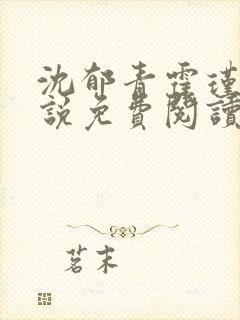 沈郁青霍瑾
說免費閱讀
茗末